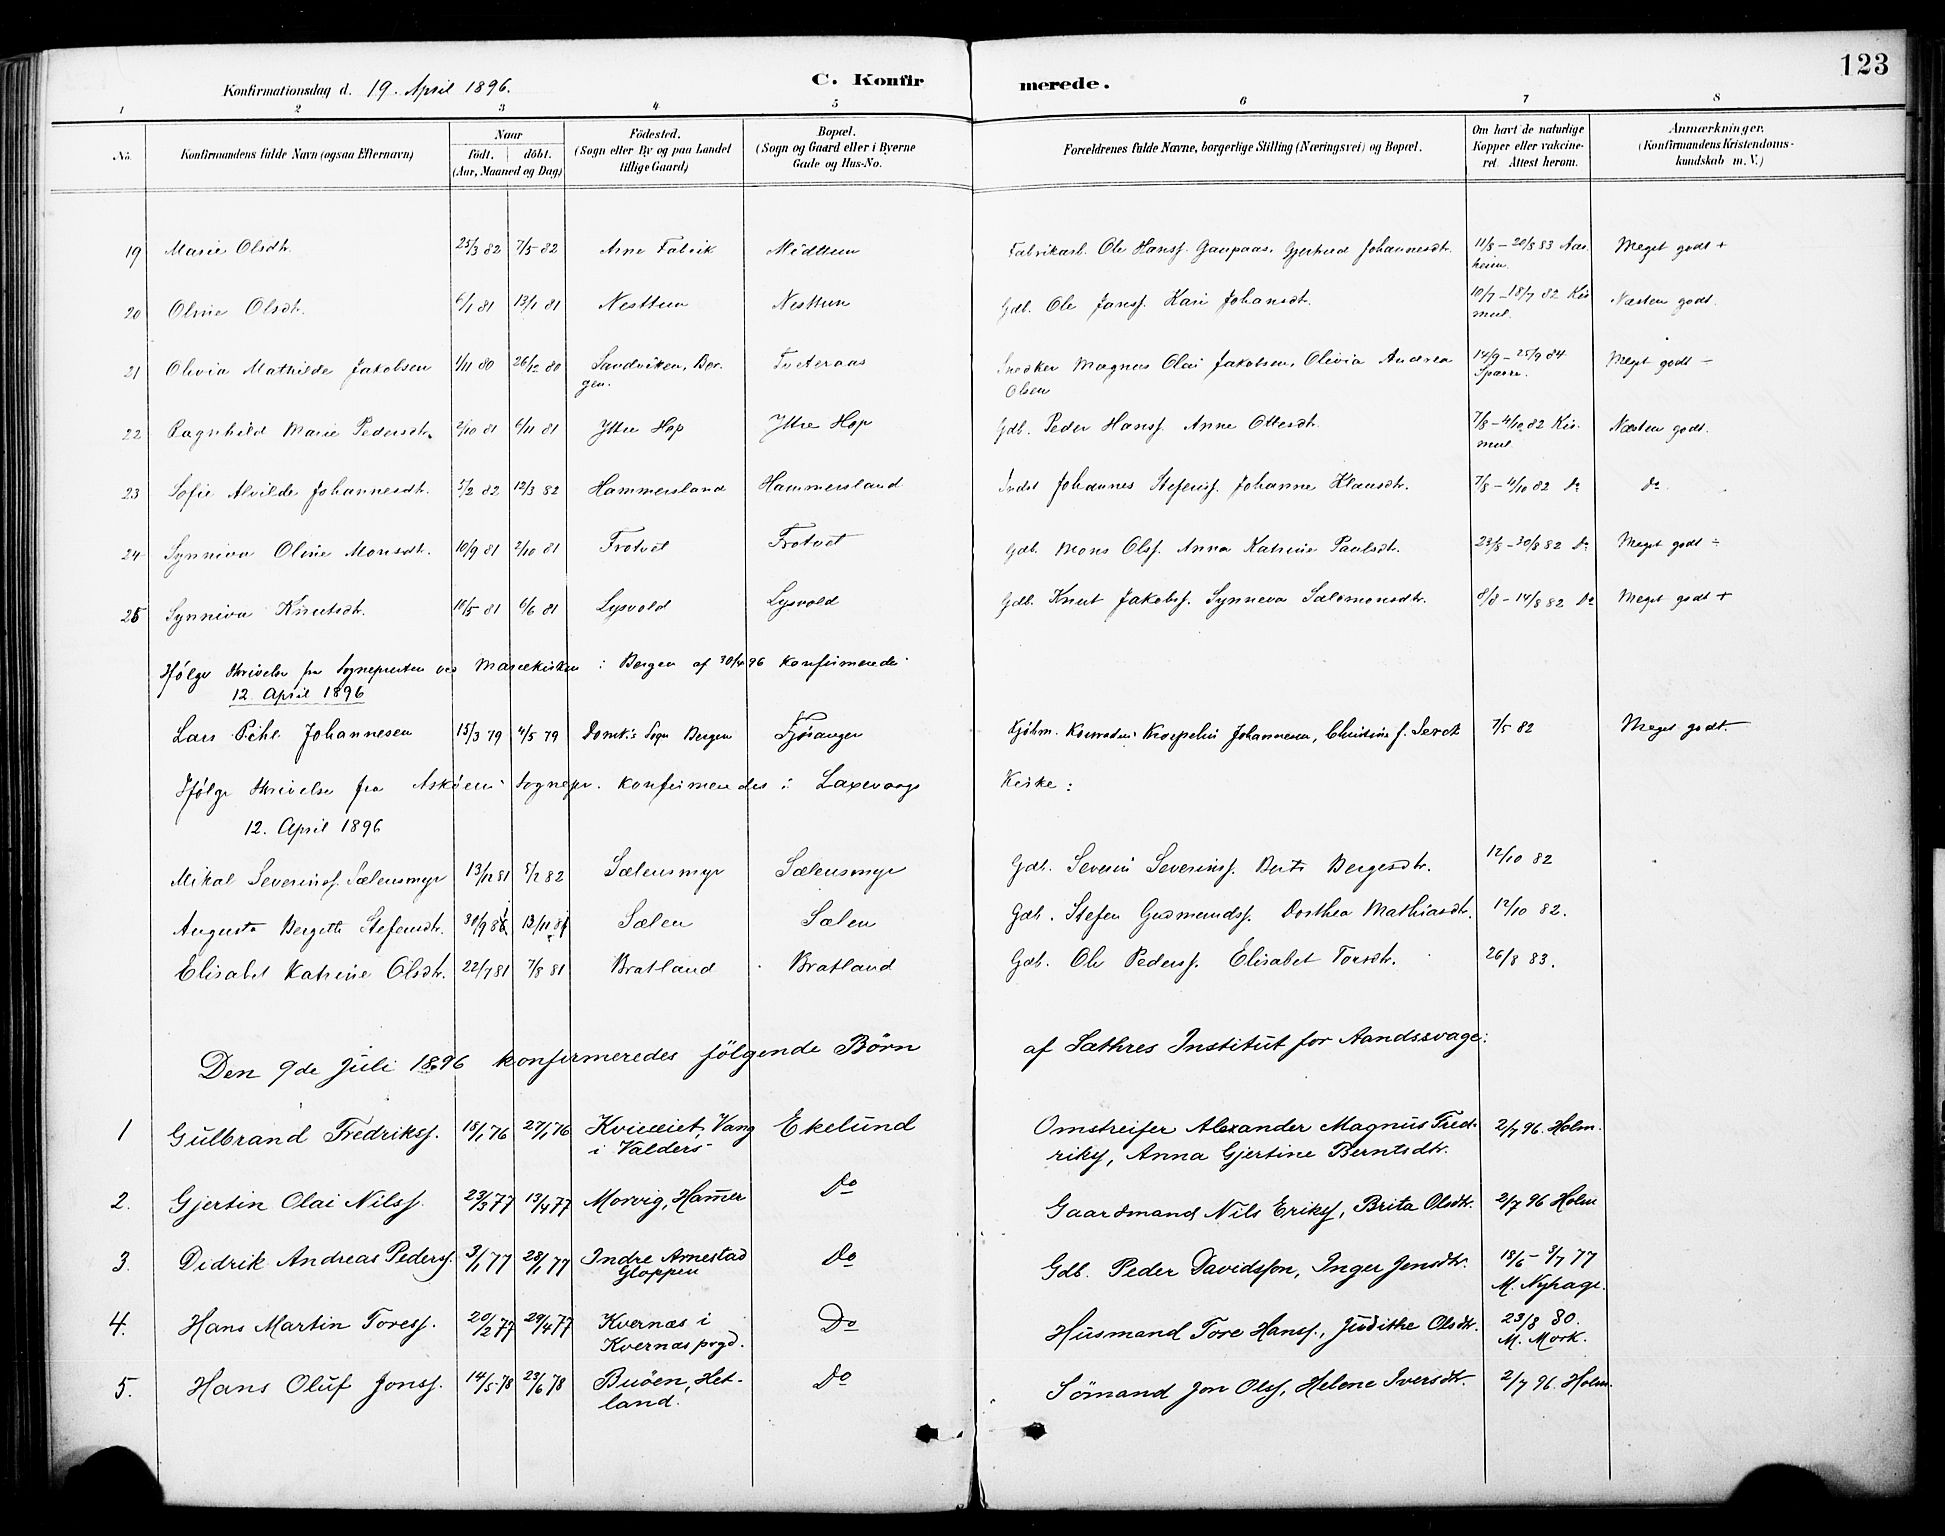 123
Konfirmationsdag d. 19. April 1896.
C. Konfirmerede.
1 2 3 4 5 6 7 8
No.
Konfirmandens fulde Navn (ogsaa Efternavn)
Naar
födt. döbt.
(Aar, Maaned og Dag)
Födested.
(Sogn eller By og paa Landet
tillige Gaard)
Bopæl.
(Sogn og Gaard eller i Byerne
Gade og Hus-No.
Forældrenes fulde Navne, borgerlige Stilling (Næringsvei) og Bopæl.
Om havt de naturlige
Kopper eller vakcine-
ret. Attest herom.
Anmærkninger.
(Konfirmandens Kristendoms-
kundskab m. V.)
19 Marie Olsdtr. 25/3 82 7/5 82 Arne Fabrik Midttun Fabrikarb. Ole Hansf. Gaupaas, Gjertrud Johannesdtr. 11/8 – 20/8 83 Aas-
heim. Meget godt +
20 Oline Olsdtr. 6/1 81 13/1 81 Nesttun Nesttun Gdb. Ole Jansf. Kari Johansdtr. 10/7 – 18/7 82 Kis
mul. Næsten godt.
21 Olivia Mathilde Jakobsen 1/11 80 26/12 80 Sandviken, Ber-
gen. Tveteraas Snedker Magnus Olai Jakobsen, Olivia Andrea
Olsen 14/9 – 25/9 84
Sparre. Meget godt –
22 Ragnhild Marie Pedersdtr. 2/10 81 6/11 81 Ytre Hop Ytre Hop Gdb. Peder Hansf. Anne Ottesdtr. 7/8 – 4/10 82 Kis-
mul Næsten godt.
23 Sofie Alvilde Johannesdtr. 5/2 82 12/3 82 Hammersland Hammersland Inds Johannes Stefensf. Johanne Klausdtr. 7/8 – 4/10 82 Do Do
24 Synniva Oline Monsdtr. 10/9 81 2/10 81 Trotvet Trotvet Gdb. Mons Olsf. Anna Katrine Paulsdtr. 23/8 – 30/8 82 Do Meget godt ÷
25 Synniva Knutsdtr. 10/5 81 6/6 81 Lysvold Lysvold Gdb. Knut Jakobsf. Synneva Salomonsdtr. 8/8 – 14/8 82 Do Meget godt +
Ifølge Skrivelse fra Sognepresten ved Mariekirken i Bergen af 30/4 96 konfirmeredes
12. April 1896
Lars Pihl Johannesen 15/3 79 4/5 79 Domk's Sogn Bergen Fjøsanger Kjöbm. Johannesen, Christine f. 7/5 82 Meget godt.
Ifølge Skrivelse fra Askøens Sognepr. konfirmeredes i Laxevaags Kirke:
12. April 1896
Mikal Severinsf. Sælensmyr 13/12 81 5/2 82 Sælensmyr Sælensmyr Gdb. Severin Severinsf. Berte Bergesdtr. 12/10 82
Augusta Bergette Stefensdtr. 30/9 81 13/11 81 Sælen Sælen Gdb. Stefen Gudmundsf. Dorthea Mathiasdtr. 12/10 82.
Elisabet Katrine Olsdtr. 22/7 81 7/8 81 Bratland Bratland Gdb. Ole Pedersf. Elisabet Torsdtr. 26/8 83.
Den 9de Juli 1896 konfirmeredes følgende Børn af Sæthres Institut for Aandssvage:
1 Gulbrand Fredriksf. 18/1 76 27/1 76 Kvieeiet, Vang
i Valders Ekelund Omstreifer Alexander Magnus Fred-
riksf, Anna Gjertine Berntsdtr. 2/7 96. Holm.
2. Gjertin Olai Nilsf. 23/3 77 13/4 77 Morvig, Hamer Do Gaardmand Nils Eriksf, Brita Olsdtr. 2/7 96 Holm
3. Didrik Andreas Pedersf. 3/1 77 28/1 77 Indre Arnestad
Gloppen Do Gdb. Peder Davidsson, Inger Jensdtr. 18/5 – 8/7 77
M. Nyhage.
4. Hans Martin Toresf. 20/2 77 29/4 77 Kvernæs i
Kvernæs prgd. Do Husmand Tore Hansf., Judithe Olsdtr. 23/8 80.
M. Mork.
5. Hans Oluf Jonsf. 14/5 78 23/6 78 Buöen, Het-
land. Do Sömand Jon Olsf, Helene Iversdtr. 2/7 96. Holm.